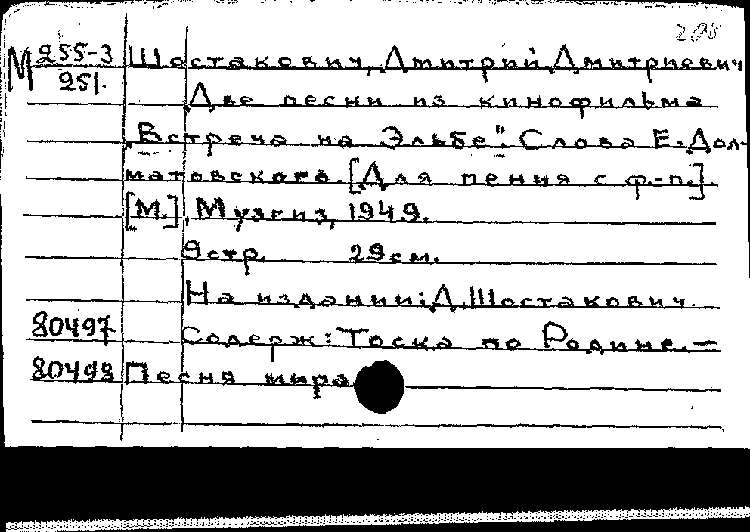 М 255-3 Шостакович, Дмитрий Дмитриевич
251.
Две песни из кинофильма
"Встреча на Эльбе". Слова Е. Дол-
матовского. [Для пения с ф.-п.].
[М.], Музгиз, 1949.
9 стр. 29 см.
На издании: Д. Шостакович.
80497 Содерж: Тоска по Родине. —
80498 Песня мира